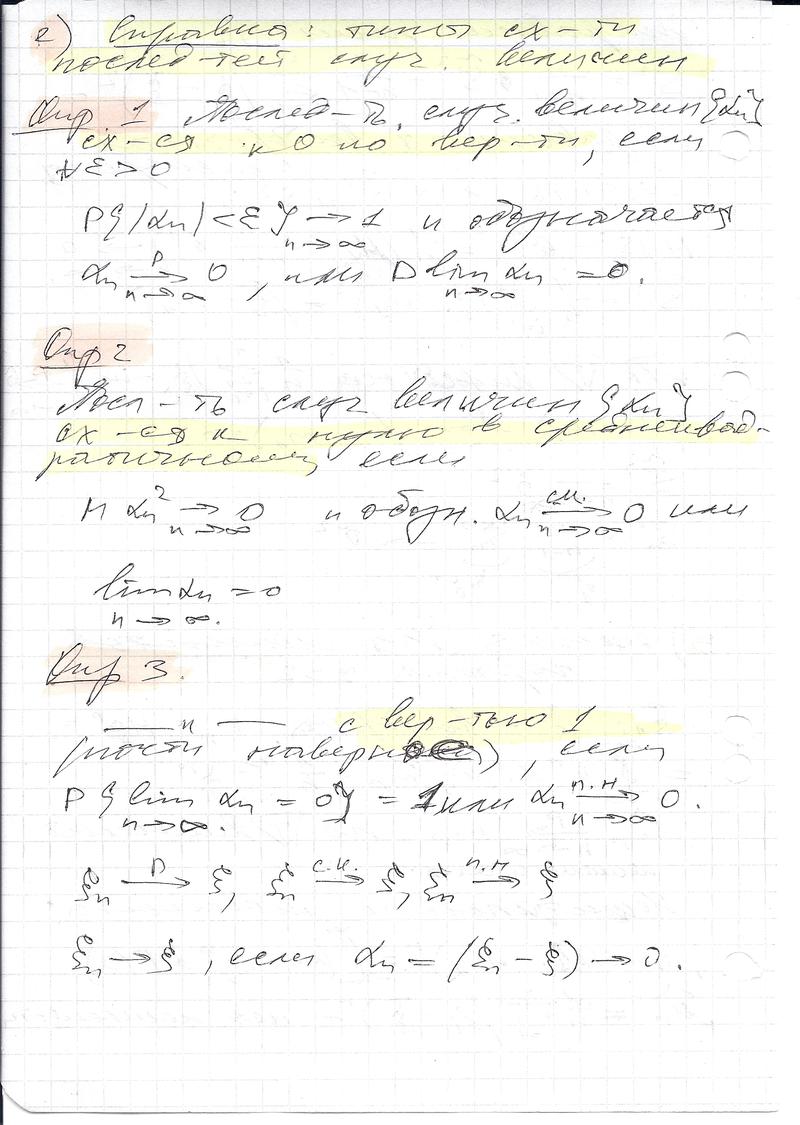 е) Справка: типы сх-ти
послед-тей случ. величин
Опр. 1 Послед-ть случ. величин {αn}
сх-ся к 0 по вер-ти, если
∀ε > 0
P{|αn| < ε} →n→∞ 1 и обозначается
αn →P n→∞ 0, или P lim n→∞ αn = 0.
Опр 2
Посл-ть случ величин {αn}
сх-ся к нулю в среднеквад-
ратичном, если
M αn² →n→∞ 0 и обозн. αn →с.к. n→∞ 0 или
lim αn = 0
n → ∞.
Опр 3.
—— " —— с вер-тью 1
(почти наверное), если
P{lim n→∞ αn = 0} = 1 или αn →п.н n→∞ 0.
ξn →P ξ, ξn →с.к. ξ, ξn →п.н ξ
ξn → ξ, если αn = (ξn − ξ) → 0.